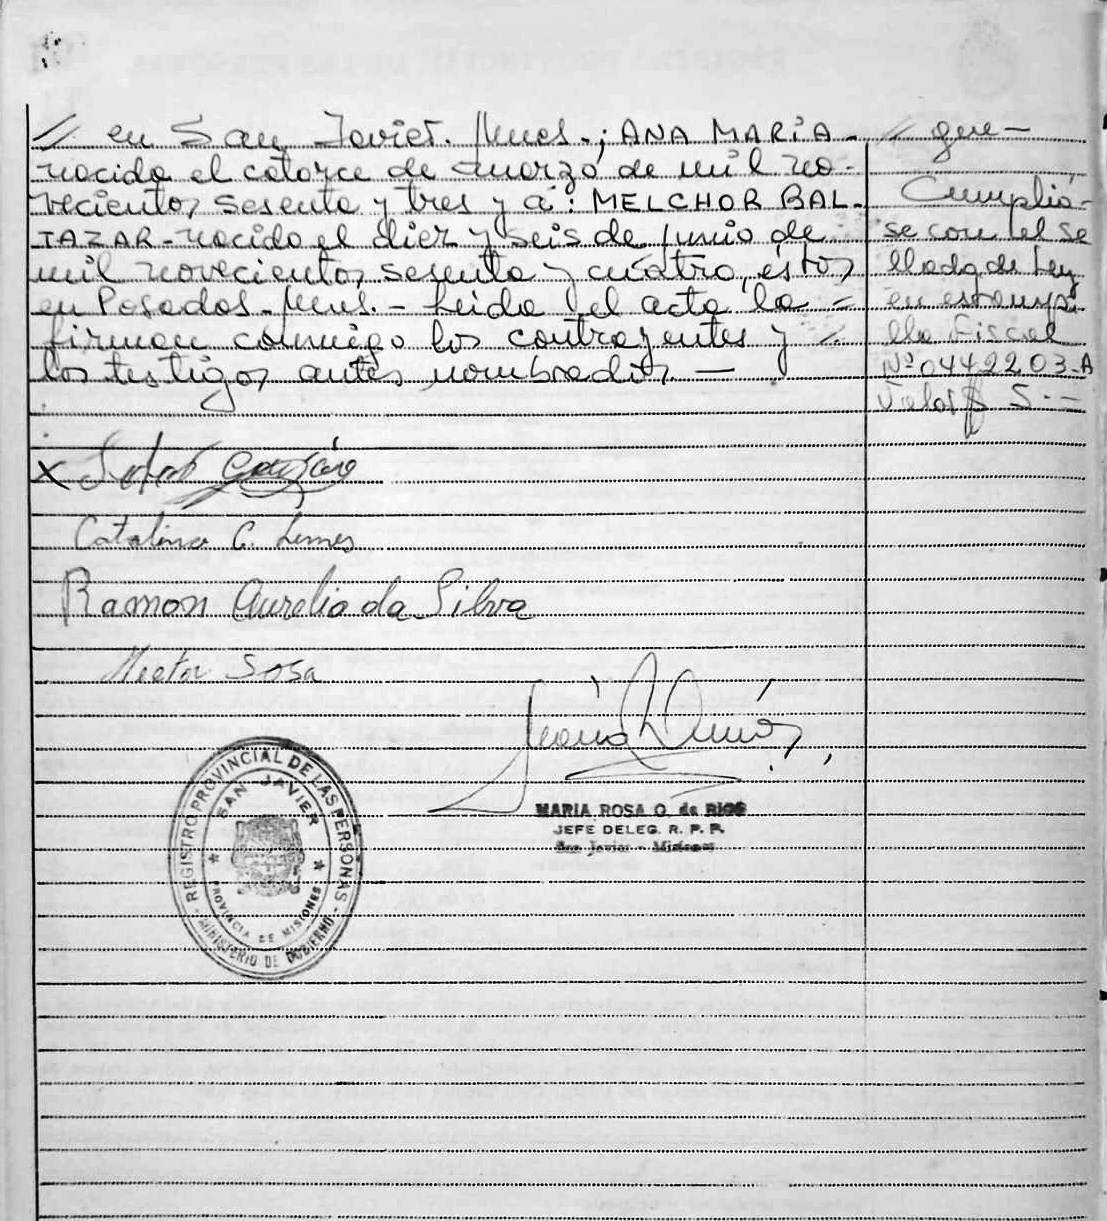 // en San Javier. Mnes.; ANA MARIA -
nacida el catorce de marzo de mil no-
vecientos sesenta y tres y a: MELCHOR BAL-
TAZAR - nacido el diez y seis de junio de
mil novecientos sesenta y cuatro, éstos
en Posadas. Mnes. - Leida el acta, la =
firman conmigo los contrayentes y //.
los testigos antes nombrados. —
// que -
Cumplió-
se con el se
llado de Ley
en estampi
lla Fiscal
Nº 0442203-A
Valor $ 5.-
X
Catalina C. Lemes
Ramon Aurelio da Silva
Hector Sosa
MARIA ROSA O. de RIOS
JEFE DELEG. R. P. P.
San Javier - Misiones
REGISTRO PROVINCIAL DE LAS PERSONAS
- MINISTERIO DE GOBIERNO -
SAN JAVIER
PROVINCIA DE MISIONES